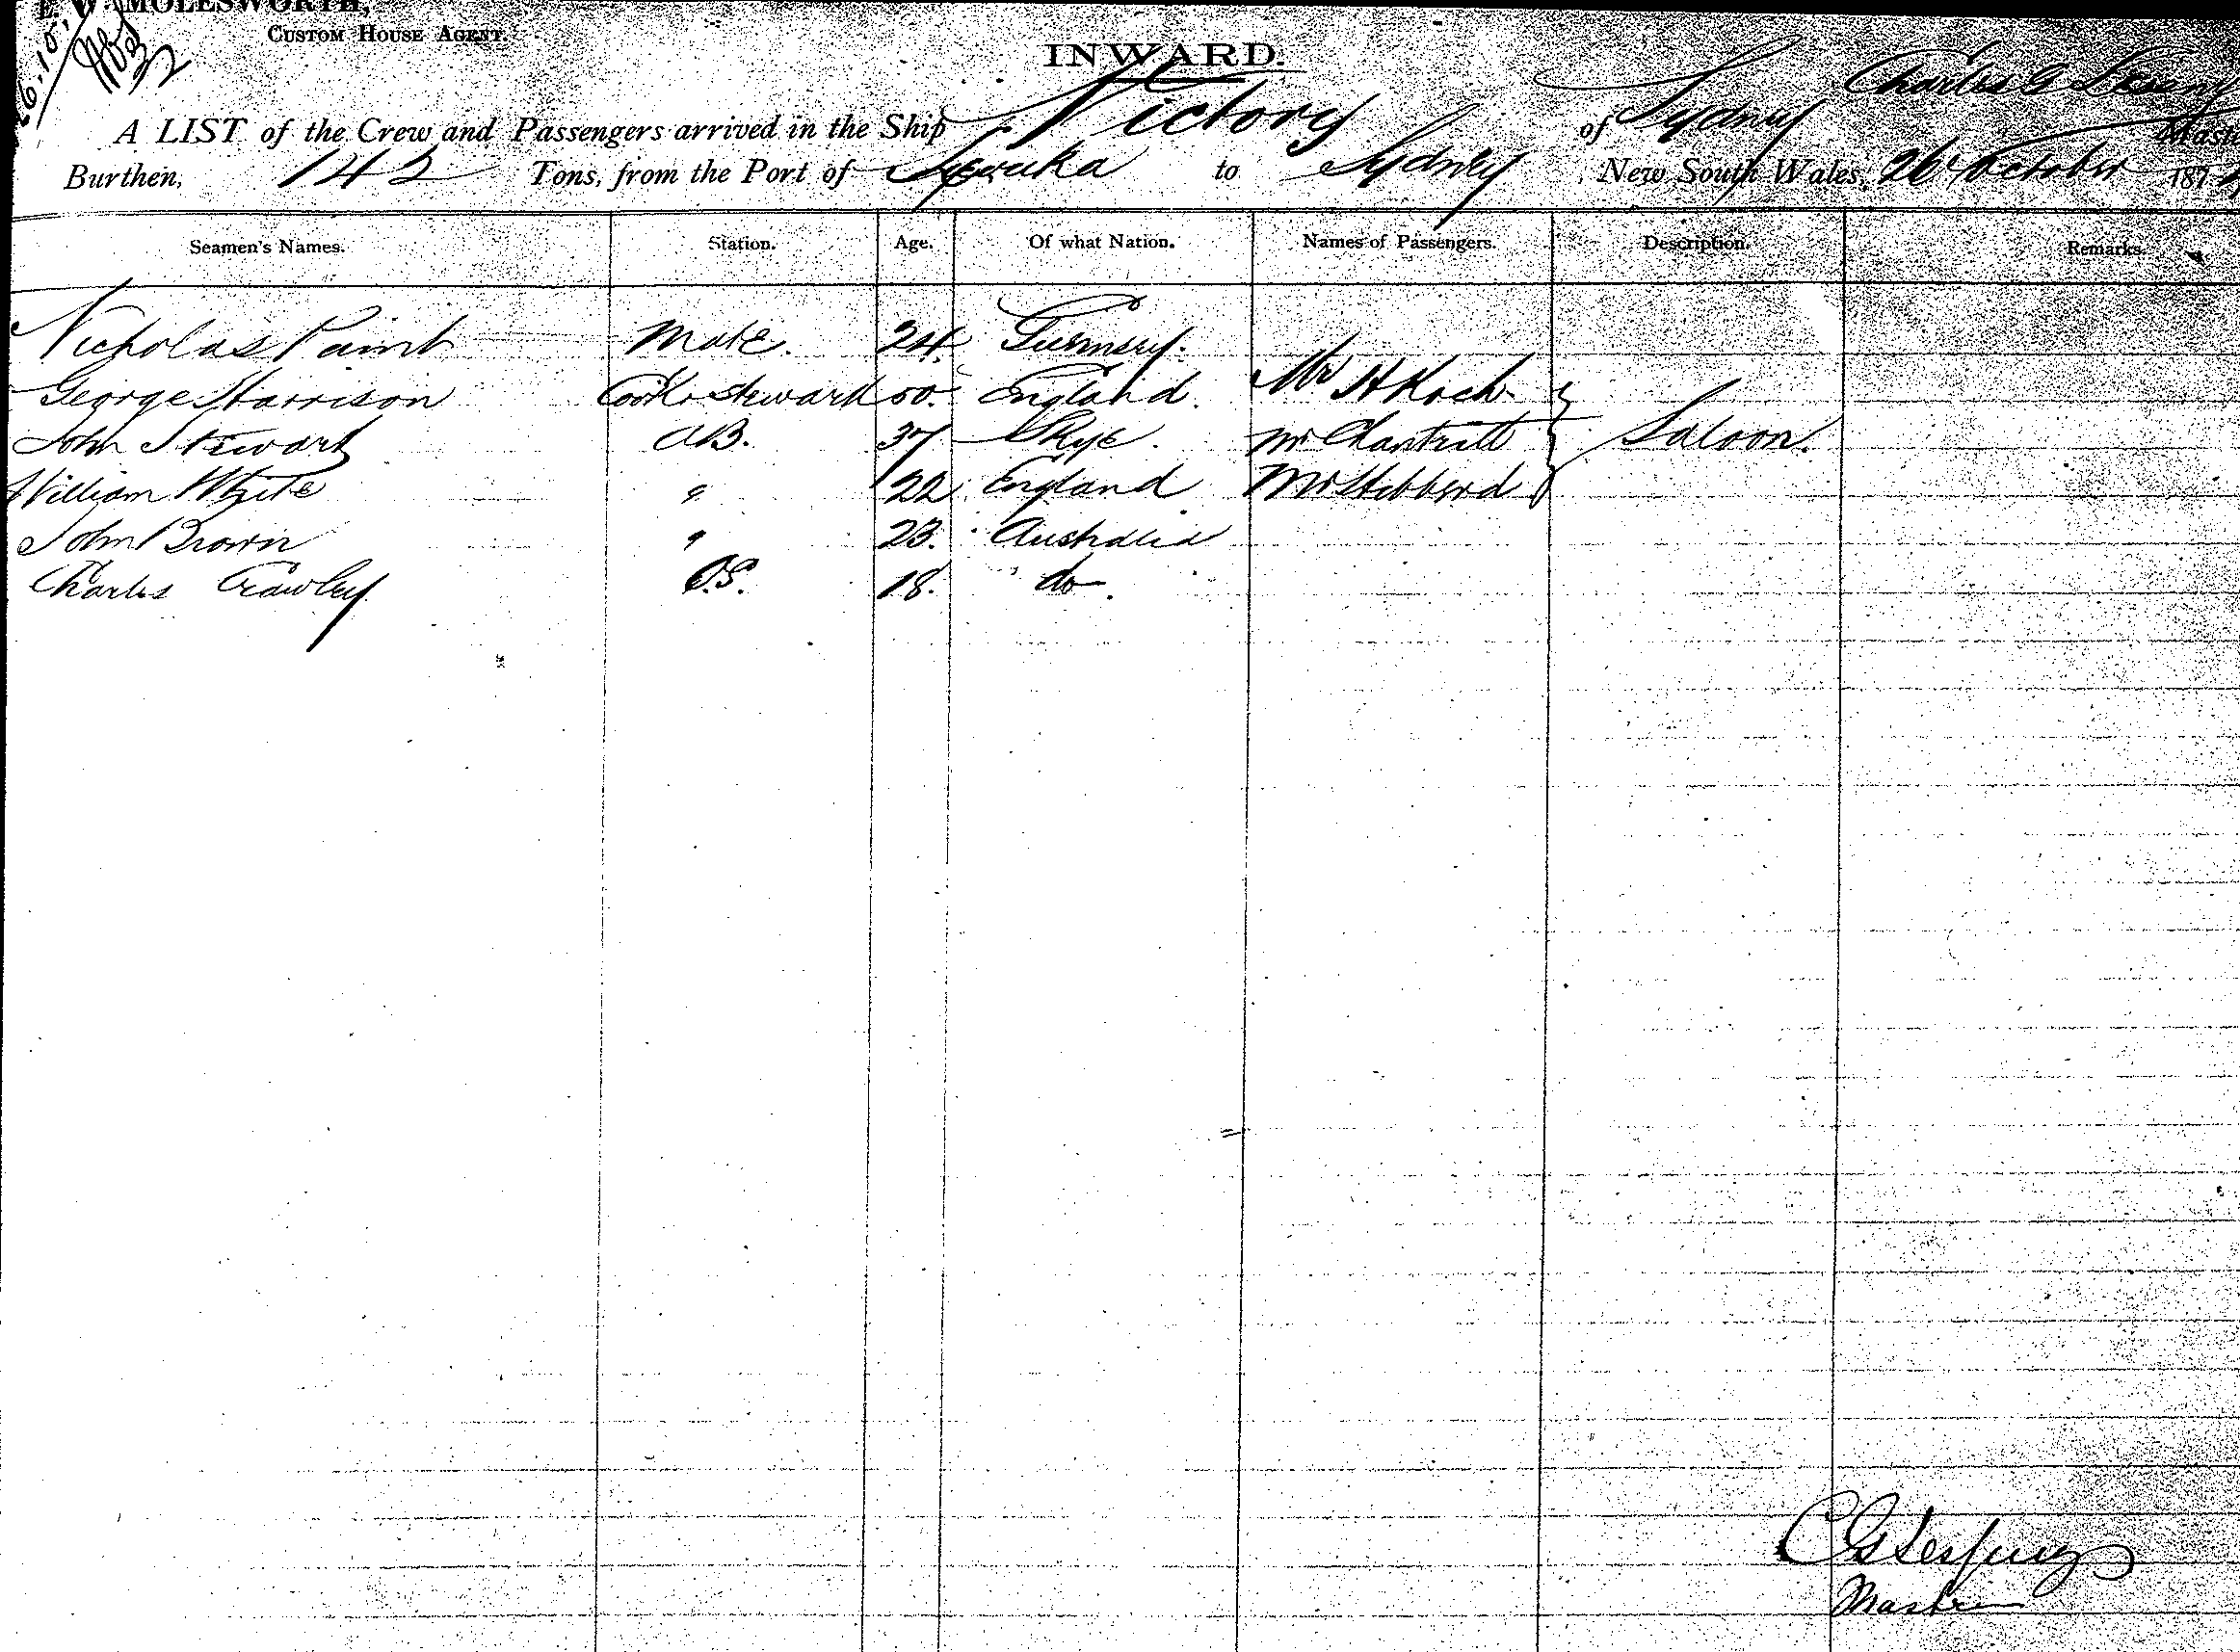 E. W. MOLESWORTH,
CUSTOM HOUSE AGENT.
INWARD.
A LIST of the Crew and Passengers arrived in the Ship Victory of Sydney Charles G Mast
Burthen, 142 Tons, from the Port of Levuka to Sydney, New South Wales, 26 October 187
Seamen's Names. Station. Age. Of what Nation. Names of Passengers. Description. Remarks.
Nicholas Paint Mate. 24 Guernsey.
George Harrison Cook & Steward 50. England. Mr H Koch
John Stewart AB. 37 Skye. Mr Chantrill Saloon.
William White " 22 England Mr Hibberd
John Brown " 23. Australia
Charles Crawley O.S. 18. do.
Master